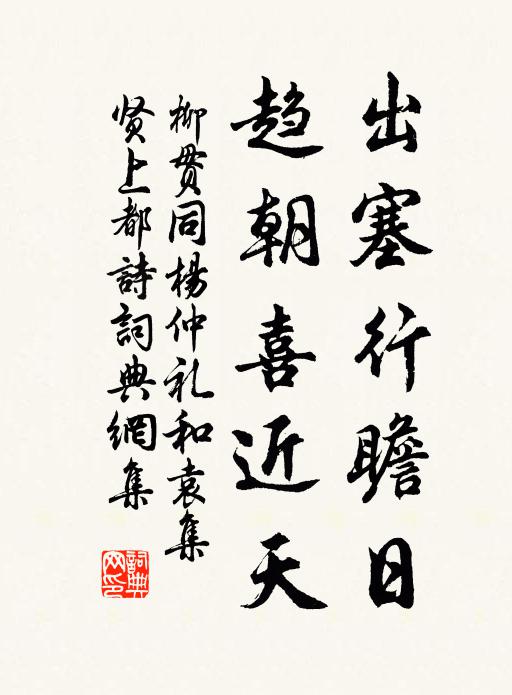 出塞行瞻日
趋朝喜近天
柳贯同杨仲礼和袁集
贤上都詩詞典網集
詞典網印